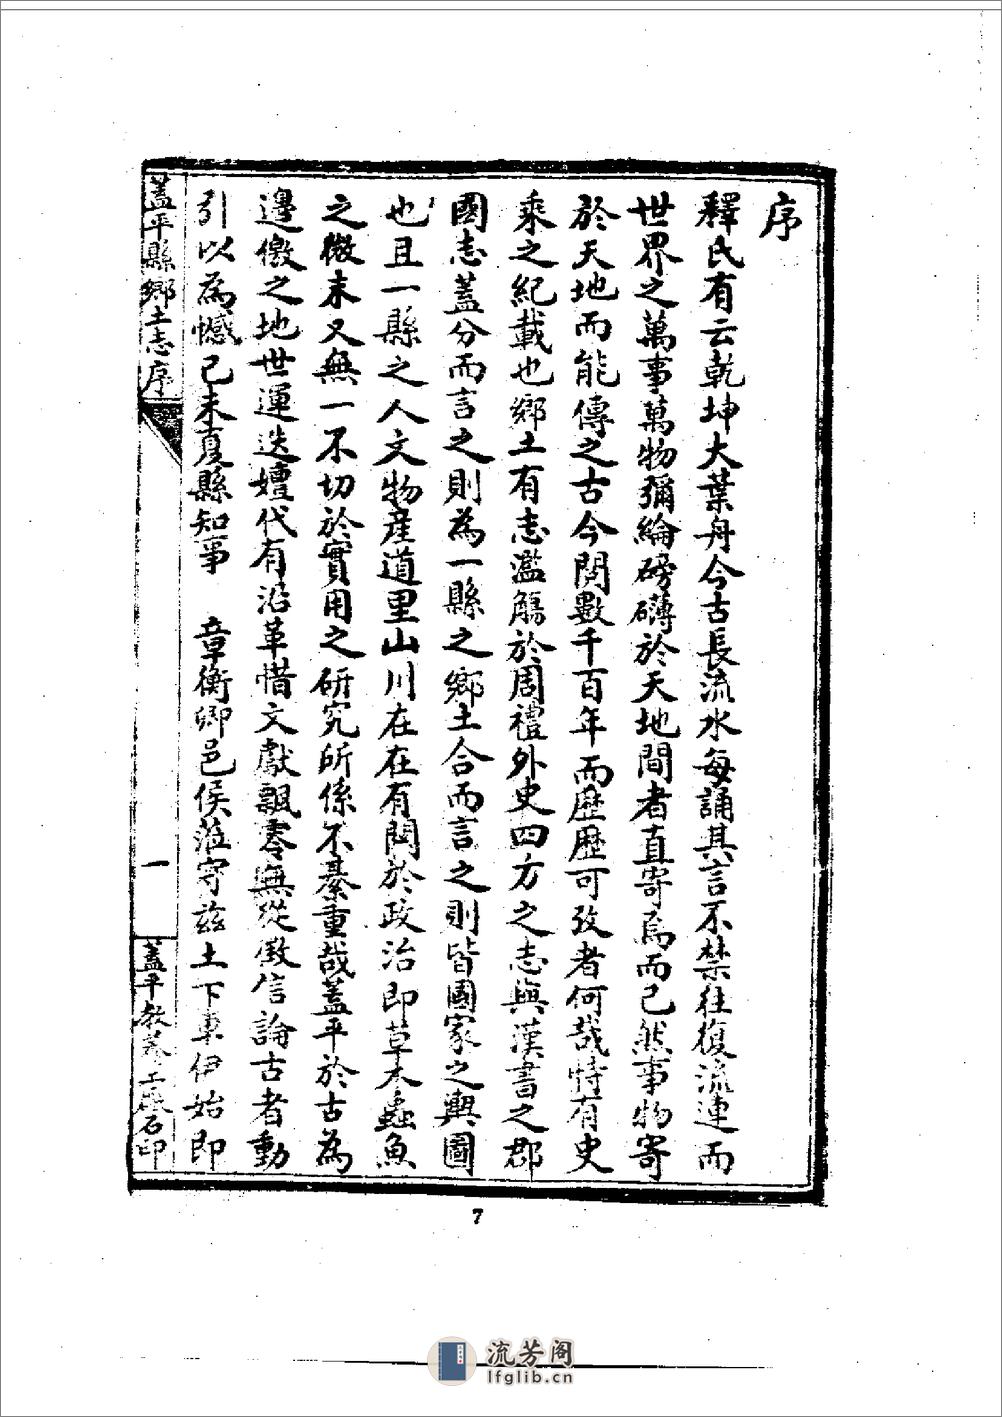 序
釋氏有云乾坤大葉舟今古長流水每誦其言不禁往復流連而
世界之萬事萬物彌綸磅礴於天地間者直寄焉而已然事物寄
於天地而能傳之古今閱數千百年而歷歷可攷者何哉恃有史
乘之紀載也鄉土有志濫觴於周禮外史四方之志與漢書之郡
國志蓋分而言之則為一縣之鄉土合而言之則皆國家之輿圖
也且一縣之人文物產道里山川在在有關於政治即草木蟲魚
之微末又無一不切於實用之研究所係不綦重哉蓋平於古為
邊徼之地世運迭嬗代有沿革惜文獻飄零無從徵信論古者動
引以為憾己未夏縣知事 章衡卿邑侯蒞守茲土下車伊始即
蓋平縣鄉土志序
一
蓋平教養工廠石印
7
流芳阁
lfglib.cn